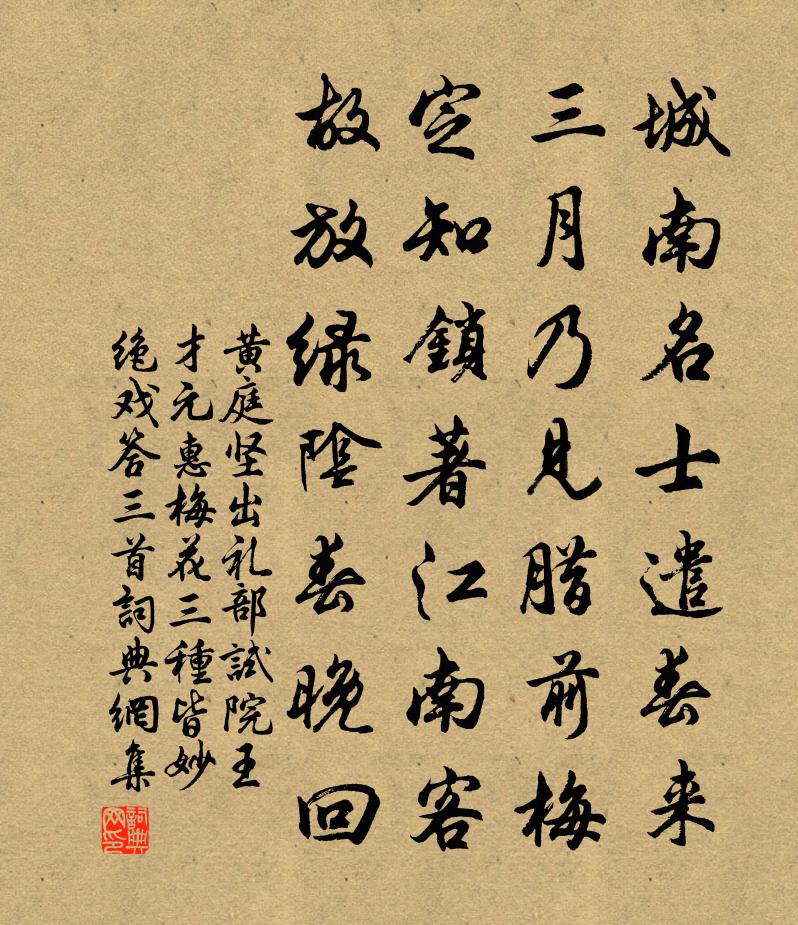 城南名士遣春来
三月乃见腊前梅
定知鎖著江南客
故放绿陰春晚回
黄庭坚出礼部試院王
才元惠梅花三種皆妙
绝戏答三首詞典網集
詞典网印